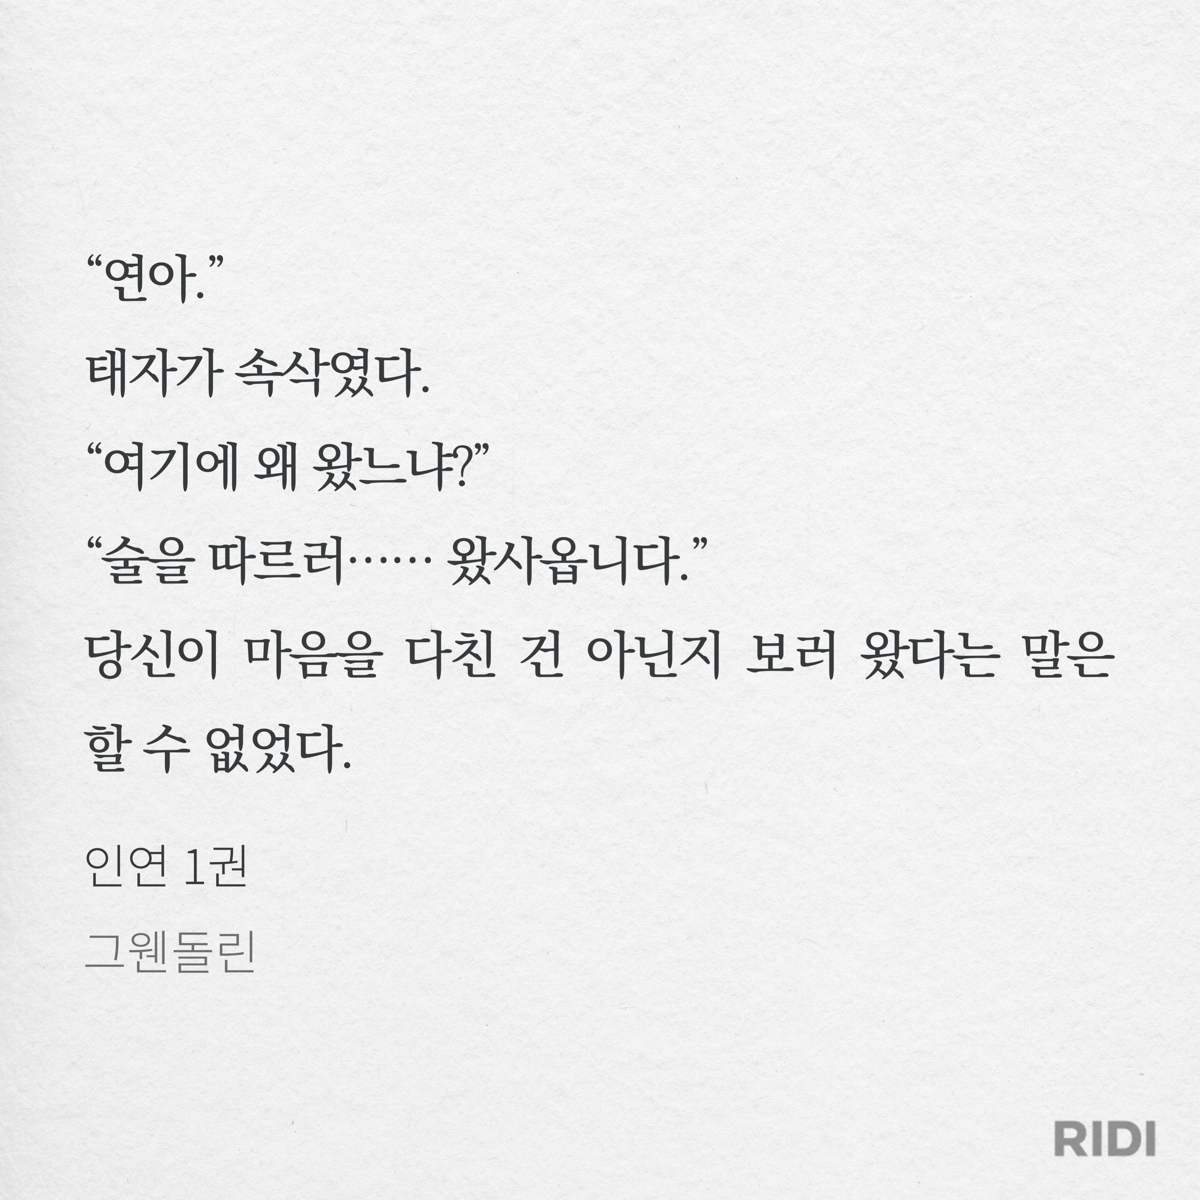 “연아.”
태자가 속삭였다.
“여기에 왜 왔느냐?”
“술을 따르러…… 왔사옵니다.”
당신이 마음을 다친 건 아닌지 보러 왔다는 말은
할 수 없었다.
인연 1권
그웬돌린
RIDI